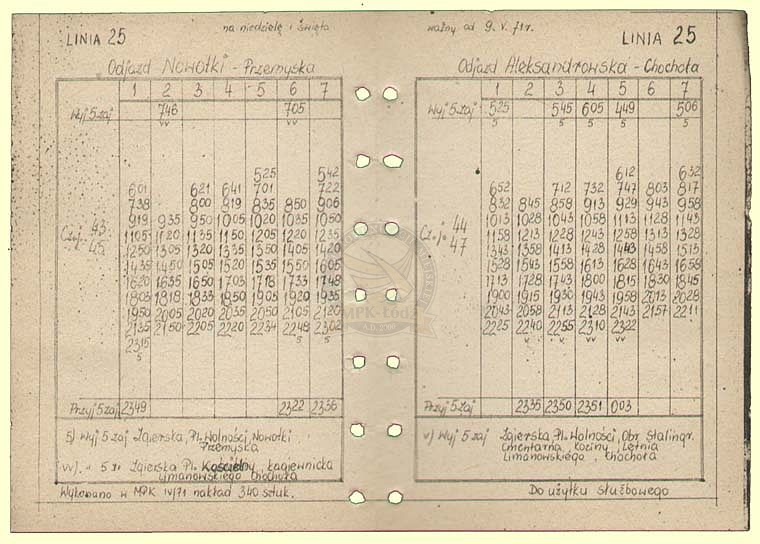 LINIA 25
na niedziele i święta
Odjazd Nowotki - Przemyska
1 2 3 4 5 6 7
Wyj 5 zaj 746 705
vv vv
525 542
601 621 641 701 722
738 800 819 835 850 906
919 935 950 1005 1020 1035 1050
1105 1120 1135 1150 1205 1220 1235
Cz.j. 43 45
1250 1305 1320 1335 1350 1405 1420
1435 1450 1505 1520 1535 1550 1605
1620 1635 1650 1703 1718 1733 1748
1803 1818 1833 1850 1905 1920 1935
1950 2005 2020 2035 2050 2105 2120
2135 2150 2205 2220 2234 2248 2302
2315 5 5
5
Przyj 5 zaj 2349 2322 2336
5) Wyj 5 zaj Zgierska, Pl. Wolności, Nowotki
Przemyska
vv). " 5 zaj Zgierska Pl. Kościelny, Łagiewnicka
Limanowskiego Chochoła
Wykonano w MPK IV/71 nakład 340 sztuk.
ważny od 9. V. 71 r.
LINIA 25
Odjazd Aleksandrowska - Chochoła
1 2 3 4 5 6 7
Wyj 5 zaj 525 545 605 449 506
5 5 5 5 5
612 632
652 712 732 747 803 817
832 845 858 913 929 943 958
1013 1028 1043 1058 1113 1128 1143
1158 1213 1228 1243 1258 1313 1328
Cz.j. 44 47
1343 1358 1413 1428 1443 1458 1513
1528 1543 1558 1613 1628 1643 1658
1713 1728 1743 1800 1815 1830 1845
1900 1915 1930 1943 1958 2013 2028
2043 2058 2113 2128 2143 2157 2211
2225 2240 2255 2310 2322
v vv v vv
Przyj 5 zaj 2335 2350 2351 003
v) Wyj 5 zaj Zgierska, Pl. Wolności, Obr. Stalingr.
Cmentarna, Kociny, Letnia
Limanowskiego, Chochoła
Do użytku służbowego
MPK-Łódź